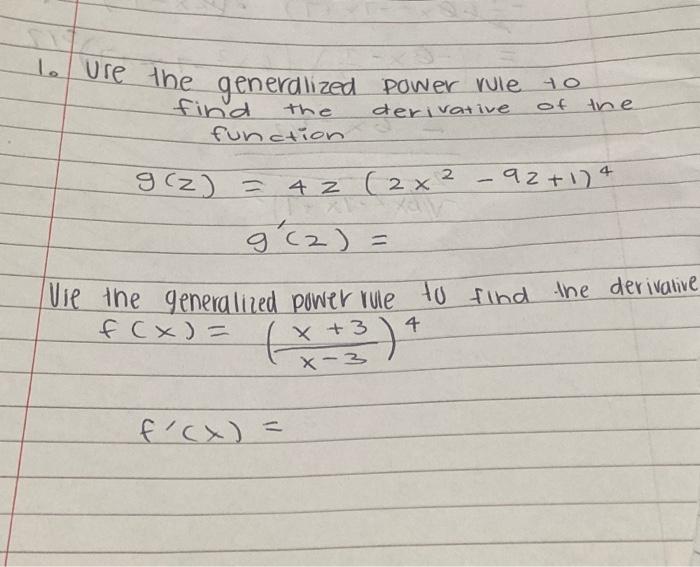 1. Use the generalized power rule to
find the derivative of the
function
g(z) = 4z (2x² - 9z+1)⁴
g'(z) =
Use the generalized power rule to find the derivative
f(x) = (x+3 / x-3)⁴
f'(x) =